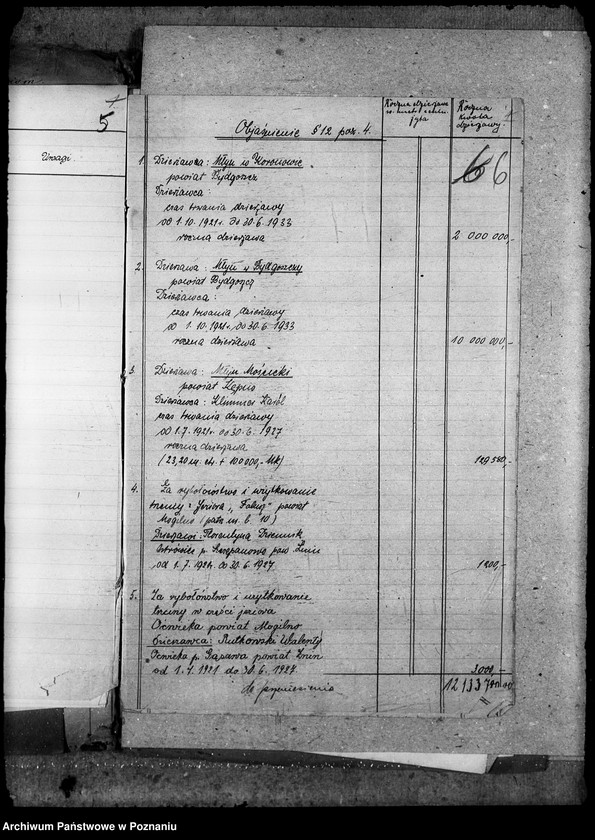 5
Uwagi
Objaśnienie § 12 poz. 4.
Roczna
kwota
dzierżawy.
6 6
1. Dzierżawa: Młyn w Koronowie
powiat Bydgoszcz
Dzierżawca:
czas trwania dzierżawy
od 1.10.1921 r. do 30.6.1933
roczna dzierżawa
2 000 000,-
2. Dzierżawa: Młyn w Bydgoszczy
powiat Bydgoszcz
Dzierżawca:
czas trwania dzierżawy
od 1.10.1921 r. do 30.6.1933
roczna dzierżawa
10 000 000,-
3. Dzierżawa: Młyn Mościcki
powiat Kępno
Dzierżawca: Klimmer Karol
czas trwania dzierżawy
od 1.7.1921 r. do 30.6.1927
roczna dzierżawa
(23,20 m. ctr. + 100 000,- Mk)
129 580,-
4. Za rybołóstwo i użytkowanie
trzciny z Jeziora „
Mogilno
Dzierżawca: Florentyna
od 1.7.1921 r. do 30.6.1927
1200,-
5. Za rybołóństwo i użytkowanie
trzciny w części jeziora
Ocwieka powiat Mogilno
Dzierżawca: Rutkowski Walenty
Ocwieka p. Gąsawa powiat Żnin
od 1.7.1921 do 30.6.1927
3000,-
do przeniesienia
Archiwum Państwowe w Poznaniu